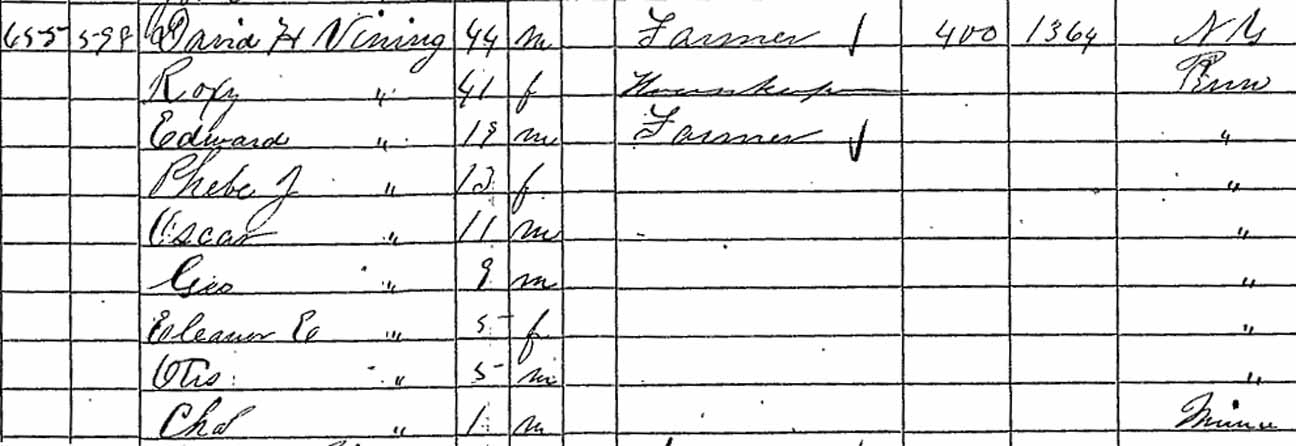 655 598 David H Vining 44 m Farmer 400 1364 NY
Roxy " 41 f Housekeeper Penn
Edward " 19 m Farmer "
Phebe J " 13 f "
Oscar " 11 m "
Geo " 9 m "
Eleanor E " 5 f "
Otis " 5 m "
Chas " 1 m Minn